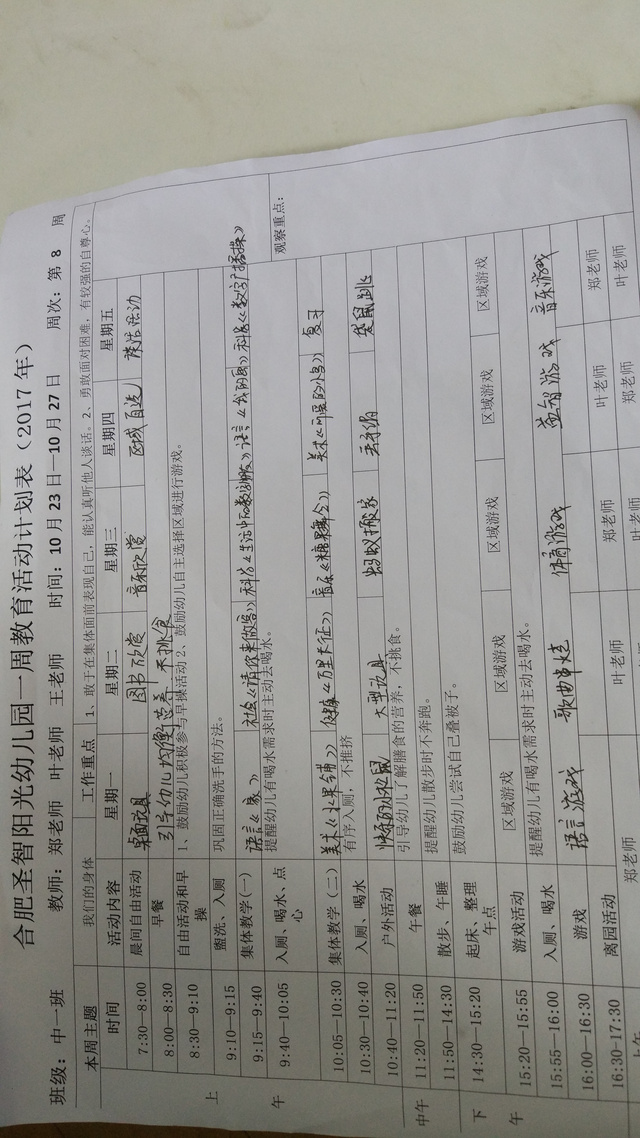 合肥圣智阳光幼儿园一周教育活动计划表（2017 年）
班级：中一班 教师：郑老师 叶老师 王老师 时间：10 月 23 日—10 月 27 日 周次：第 8 周
本周主题 我们的身体 工作重点 1、敢于在集体面前表现自己，能认真听他人谈话。2、勇敢面对困难，有较强的自尊心。
时间 活动内容 星期一 星期二 星期三 星期四 星期五
7:30—8:00 晨间自由活动 桌面玩具 图书欣赏 音乐欣赏 区域自选 活动
8:00—8:30 早餐 引导幼儿均衡营养，不挑食
8:30—9:10 自由活动和早操 1、鼓励幼儿积极参与早操活动 2、鼓励幼儿自主选择区域进行游戏。
上午
9:10—9:15 盥洗、入厕 巩固正确洗手的方法。
9:15—9:40 集体教学（一） 语言《家》 社会《请你来做客》 科学《生活中的》 语言《我的》 科学《数字广播操》
9:40—10:05 入厕、喝水、点心 提醒幼儿有喝水需求时主动去喝水。
观察重点：
10:05—10:30 集体教学（二） 美术《水果铺》 健康《万里长征》 音乐《糖果舞会》 美术《》 复习
10:30—10:40 入厕、喝水 有序入厕，不推挤
10:40—11:20 户外活动 快乐的小松鼠 大型玩具 蚂蚁搬家 袋鼠跳
中午
11:20—11:50 午餐 引导幼儿了解膳食的营养，不挑食。
11:50—14:30 散步、午睡 提醒幼儿散步时不奔跑。
下午
14:30—15:20 起床、整理 午点 鼓励幼儿尝试自己叠被子。
15:20—15:55 游戏活动 区域游戏 区域游戏 区域游戏 区域游戏 区域游戏
15:55—16:00 入厕、喝水 提醒幼儿有喝水需求时主动去喝水。
16:00—16:30 游戏 语言游戏 歌曲串烧 体育游戏 益智游戏 音乐游戏
16:30-17:30 离园活动
郑老师 叶老师 郑老师 叶老师 郑老师
上午 郑老师 叶老师 郑老师 叶老师